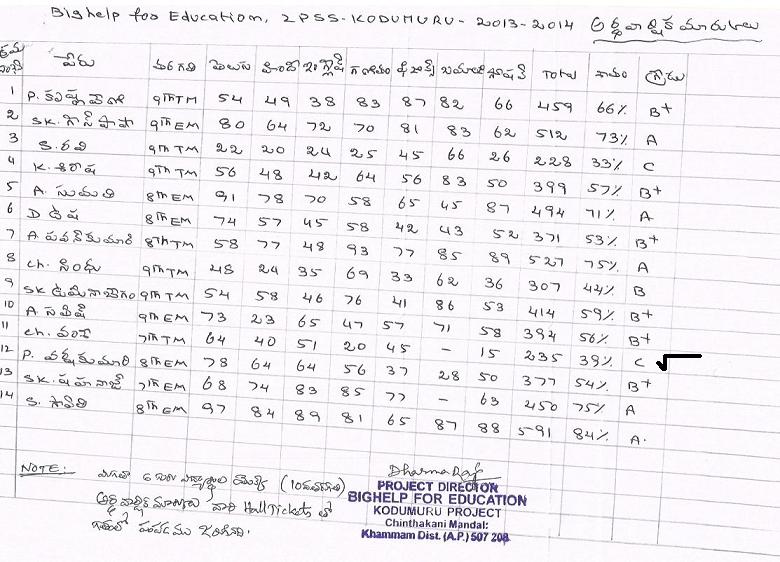 Bighelp for Education, ZPSS-KODUMURU- 2013-2014 అర్థ వార్షిక మార్కులు
క్రమ సంఖ్య పేరు తరగతి తెలుగు హిందీ ఇంగ్లీష్ గణితం సోషల్ TOTAL శాతం గ్రేడు
1 P. 9th TM 54 49 38 83 87 82 66 459 66% B+
2 SK. 9th EM 80 64 72 70 81 83 62 512 73% A
3 S. రవి 9th TM 22 20 24 25 45 66 26 228 33% C
4 K. శిరీష 9th TM 56 48 42 64 56 83 50 399 57% B+
5 A. సుమతి 8th EM 91 78 70 58 65 45 87 494 71% A
6 D దీప 8th EM 74 57 45 58 42 43 52 371 53% B+
7 A. పవన్ కుమార్ 8th TM 58 77 48 93 77 85 89 527 75% A
8 Ch. సింధు 9th TM 48 24 35 69 33 62 36 307 44% B
9 SK 9th TM 54 58 46 76 41 86 53 414 59% B+
10 A. 9th EM 73 23 65 47 57 71 58 394 56% B+
11 Ch. వంశీ 7th TM 64 40 51 20 45 - 15 235 39% C
12 P. 8th EM 78 64 64 56 37 28 50 377 54% B+
13 SK. 7th EM 68 74 83 85 77 - 63 450 75% A
14 S. 8th EM 97 84 89 81 65 87 88 591 84% A.
NOTE: మిగతా 6 గురి విద్యార్థుల (10వ తరగతి)
అర్థ వార్షిక మార్కులు వారి Hall Tickets తో
గతంలో పంపడము జరిగినది.
Dharma Raj
PROJECT DIRECTOR
BIGHELP FOR EDUCATION
KODUMURU PROJECT
Chinthakani Mandal:
Khammam Dist. (A.P.) 507 208